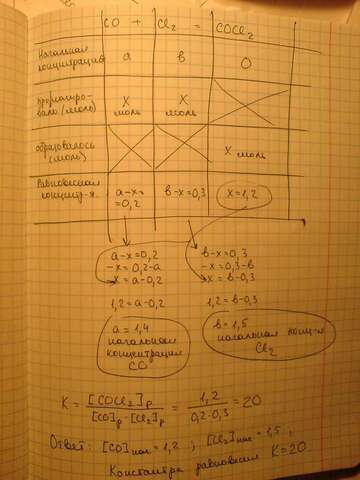 CO + Cl₂ = COCl₂
Начальная концентрация a в 0
прореагировали (моль) X моль X моль
образовалось (моль) X моль
Равновесная концентр-я a-x= =0,2 в-x=0,3 x=1,2
a-x=0,2 в-x=0,3
-x=0,2-a -x=0,3-в
x=a-0,2 x=в-0,3
1,2=a-0,2 1,2=в-0,3
a=1,4 в=1,5
начальная начальная конц-я
концентрация Cl₂
CO
K = [COCl₂]р / [CO]р·[Cl₂]р = 1,2 / 0,2·0,3 = 20
Ответ: [CO]нач=1,2; [Cl₂]нач=1,5,
Константа равновесия K=20